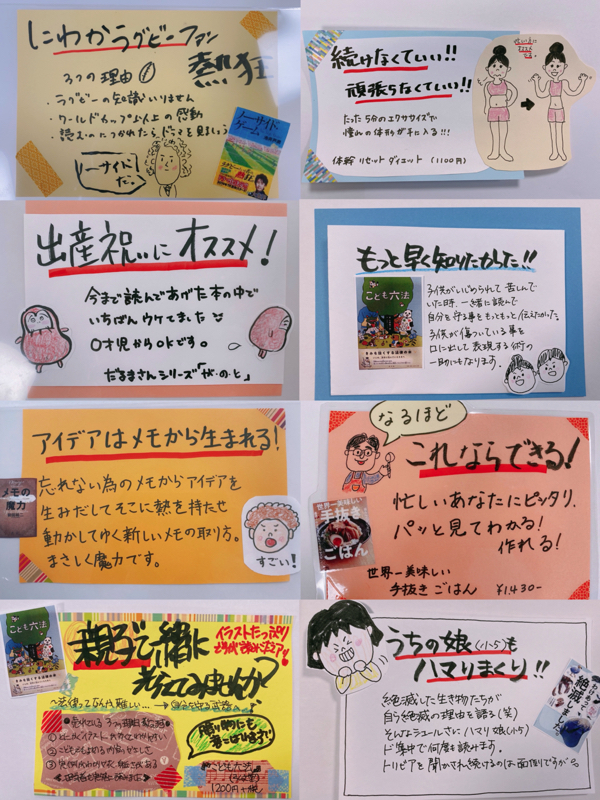 にわかラグビーファン
熱狂
3つの理由
・ラグビーの知識いりません
・ワールドカップなみの感動
・読むのにつかれたらドラマを見ましょう
ノーサイド
だ。
ノーサイド
ゲーム
続けなくていい!!
頑張らなくていい!!
たった5分のエクササイズで
憧れの体形が手に入る!!!
体幹リセットダイエット (1100円)
出産祝いにオススメ!
今まで読んであげた本の中で
いちばんウケてました
0才児からOKです。
だるまさんシリーズ「が・の・と」
もっと早く知りたかった!!
こども六法
子供がいじめられて苦しんで
いた時、一緒に読んで
自分を守る事をもっともっと伝えたかった。
子供が傷ついている事を
口に出して表現する術の
一助にもなります。
アイデアはメモから生まれる!
メモの
魔力
忘れない為のメモからアイデアを
生みだしてそこに熱を持たせ
動かしてゆく新しいメモの取り方。
まさしく魔力です。
すごい!
なるほど
これならできる!
世界一美味しい
手抜き
ごはん
忙しいあなたにピッタリ、
パッと見てわかる!
作れる!
世界一美味しい
手抜きごはん ¥1430-
こども六法
親子で一緒に
考えてみませんか?
イラストたっぷり
1200円+税
うちの娘(小5)も
ハマりまくり!!
絶滅した生き物たちが
自ら絶滅の理由を語る(笑)
そんなシュールさに ハマリ娘(小5)
ド集中で何度も読みます。
トリビアを聞かされ続けるのは面倒ですが
わけあって
絶滅しました。